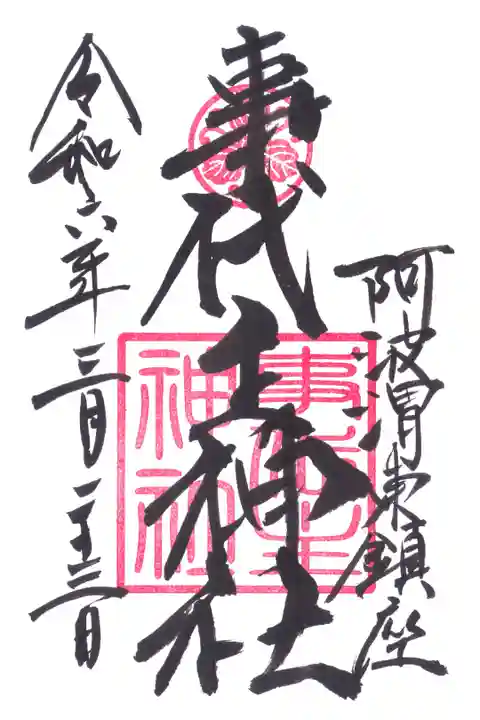 阿波渭東鎮座
事代主神社
事代主
神社
令和六年三月二十三日